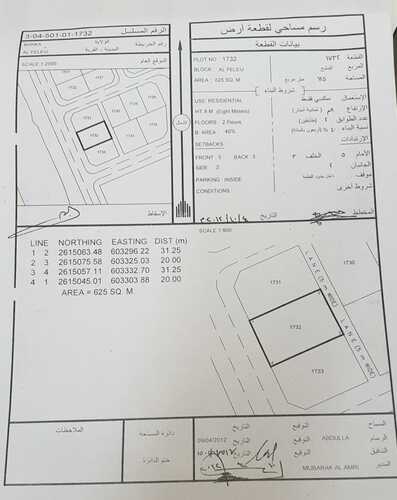 3-04-501-01-1732
الرقم المسلسل
رقم الخريطة
الولاية
BARKA
المدينة - القرية
AL FELEIJ
SCALE 1:2000
الموقع العام
1732
الشمال
رسم مساحي لقطعة أرض
بيانات القطعة
PLOT NO 1732
١٧٣٢
القطعة
BLOCK AL FELEIJ
المربع
AREA : 625 SQ. M
متر مربع
٦٢٥
المساحة
شروط البناء
USE: RESIDENTIAL
سكني فقط
الإستعمال
HT. 8 M (Eight Meters)
الإرتفاع
FLOORS : 2 Floors
عدد الطوابق
B. AREA 40%
نسبة البناء
SETBACKS
الإرتدادات
FRONT 5 BACK 3
٣
الخلف
٥
الأمام
SIDE 2
٢
الجانبان
PARKING INSIDE
موقف
CONDITIONS
شروط أخرى
الإسقاط
التاريخ
المخطط
SCALE 1:500
LINE NORTHING EASTING DIST (m)
1 2 2615063.48 603296.22 31.25
2 3 2615075.58 603325.03 20.00
3 4 2615057.11 603332.70 31.25
4 1 2615045.01 603303.88 20.00
AREA = 625 SQ. M.
1730
1731
LANE (5 m WIDE)
1732
LANE (5 m WIDE)
1733
الملاحظات
دائرة المساحة
ختم الدائرة
التاريخ
التوقيع
المساح
09/04/2012
التاريخ
التوقيع
ABDULLA
الرسام
التاريخ
التوقيع
التدقيق
التاريخ
التوقيع
MUBARAK AL AMRI
المدير